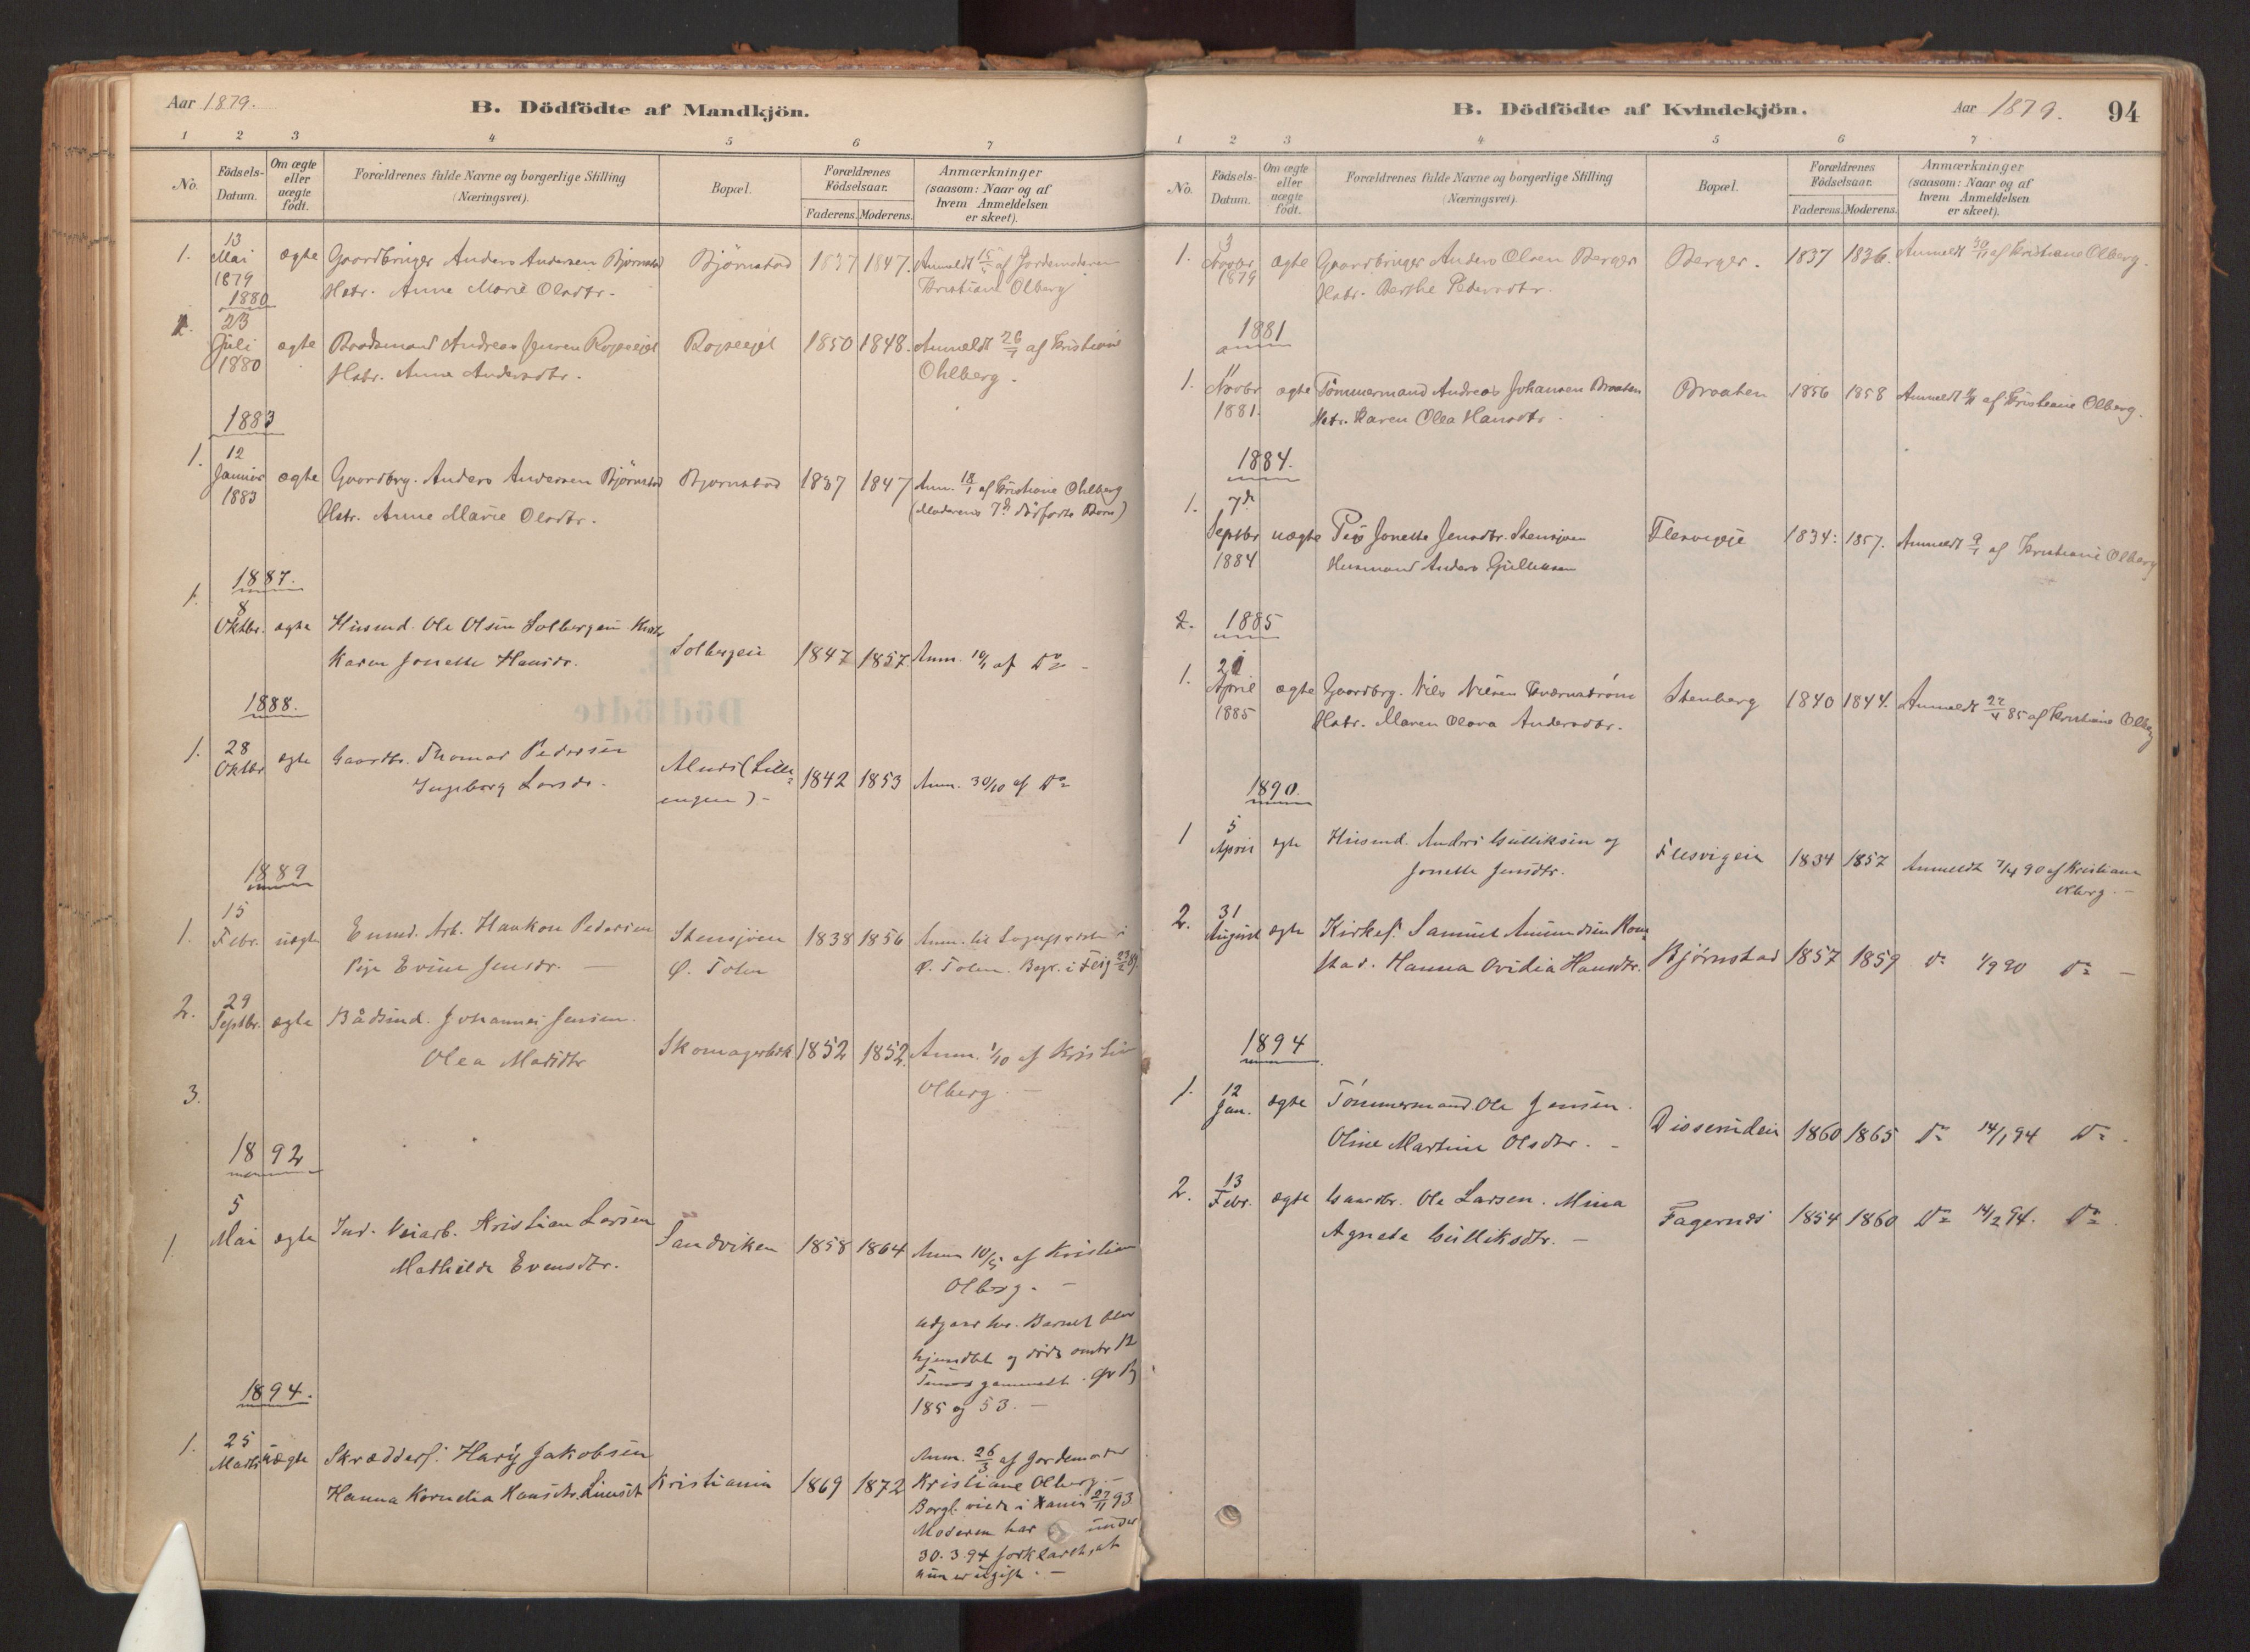 Aar 1879.
B. Dödfödte af Mandkjön.
1 2 3 4 5 6 7
No.
Födsels-Datum.
Om ægte eller uægte födt.
Forældrenes fulde Navne og borgerlige Stilling (Næringsvei).
Bopæl.
Forældrenes Födselsaar.
Faderens. Moderens.
Anmærkninger (saasom: Naar og af hvem Anmeldelsen er skeet).
1. 13 Mai 1879 ægte Gaardbruger Anders Andersen Bjørnstad Bjørnstad 1837 1847. Anmeldt af Jordemoderen
Hstr. Anne Marie Olsdtr. Kristiane Olberg
1880
23 Juli 1880 ægte Baadsmand Andreas Jensen 1850 1848. Anmeldt 26/7 af Kristiane
Hstr. Anne Andersdtr. Ohlberg.
1883
1. 12 Januar 1883 ægte Gaardbrg. Anders Andersen Bjørnstad Bjørnstad 1837 1847 Anm. 18/1 af Kristiane Ohlberg
Hstr. Anne Marie Olsdtr. (Moderens 7de dødfødte Barn)
1887.
1. 8 Oktbr. ægte Husmd. Ole Olsen Solbergeie
Karen Jonette Hansdr. Solbergeie 1847 1857 Anm. af Do
1888.
1. 28 Oktbr ægte Gaardbr. Thomas Pedersen
Ingeborg Larsdr. 1842 1853 Anm. 30/10 af Do
1889
1. 15 Febr. uægte Enmd. Arb. Haakon Pedersen Stensjøen 1838 1856 Anm. til Sognepresten i
Pige Evine Jensdr. Ø. Toten Ø. Toten.
2. 29 Septbr. ægte Bådsmd. Johannes Jensen
Olea Matsdtr Skomagerbæk 1852 1852. Anm. 1/10 af Kristiane
Olberg
3.
1892
1. 5 Mai ægte Ind. Veiarb. Kristian Larsen Sandviken 1858 1864 Anm 10/5 af Kristiane
Mathilde Evensdtr. Olberg.
udgaar her. Barnet blev
hjemdøbt og døde omtr 12
Timer gammelt.
185 og 53.
1894.
1. 25 Marts uægte Skræddersv. Harij Jakobsen
Hanna Kornelia Hansdtr. Kristiania 1869 1872
Anm. 26/3 af Jordemoder
Kristiane Olberg.
Borgl. viede i Xania 27/11 93.
Moderen har under
30.3.94 forklaret, at
hun er ugift.
B. Dödfödte af Kvindekjön.
Aar 1879. 94
1 2 3 4 5 6 7
No.
Födsels-Datum.
Om ægte eller uægte födt.
Forældrenes fulde Navne og borgerlige Stilling (Næringsvei).
Bopæl.
Forældrenes Födselsaar.
Faderens. Moderens.
Anmærkninger (saasom: Naar og af hvem Anmeldelsen er skeet).
1. 3 Novbr 1879 ægte Gaardbruger Anders Olsen Berger Berger. 1837 1836. Anmeldt 30/11 af Kristiane Olberg.
Hstr. Berthe Pedersdtr.
1881
1. 11 Novbr 1881. ægte Tömmermand Andreas Johansen Braaten Braaten 1856 1858 Anmeldt af Kristiane Olberg.
Hstr. Karen Olea Hansdtr.
1884.
1. 7de Septbr 1884 uægte Pige Jonette Jensdtr. Stensjøen Flesvigeie 1834. 1857. Anmeldt af Kristiane Olberg
Husmand Anders Gulliksen
2. 1885
1. April 1885 ægte Gaardbrg. Nils Nilsen Kværnstrøm Stenberg 1840 1844. Anmeldt 22/4 85 af Kristiane Olberg
Hstr. Maren Olava Andersdtr.
1890.
1 5 April ægte Husmd. Anders Gulliksen og Flesvigeie 1834 1857 Anmeldt 7/4 90 af Kristiane
Jonette Jensdtr. Olberg.
2. 31 August ægte Kirkes. Samuel Amundsen
stad. Hanna Ovidia Hansdtr. Bjørnstad 1857 1859 Do 1/9 90 Do
1894
1. 12 Jan. ægte Tømmermand Ole Jensen
Oline Martine Olsdtr. 1860 1865 Do 14/1 94 Do.
2. 13 Febr. ægte Gaardbr. Ole Larsen. Mina Fagernes 1854 1860 Do 14/2 94. Do.
Agnete Gulliksdtr.